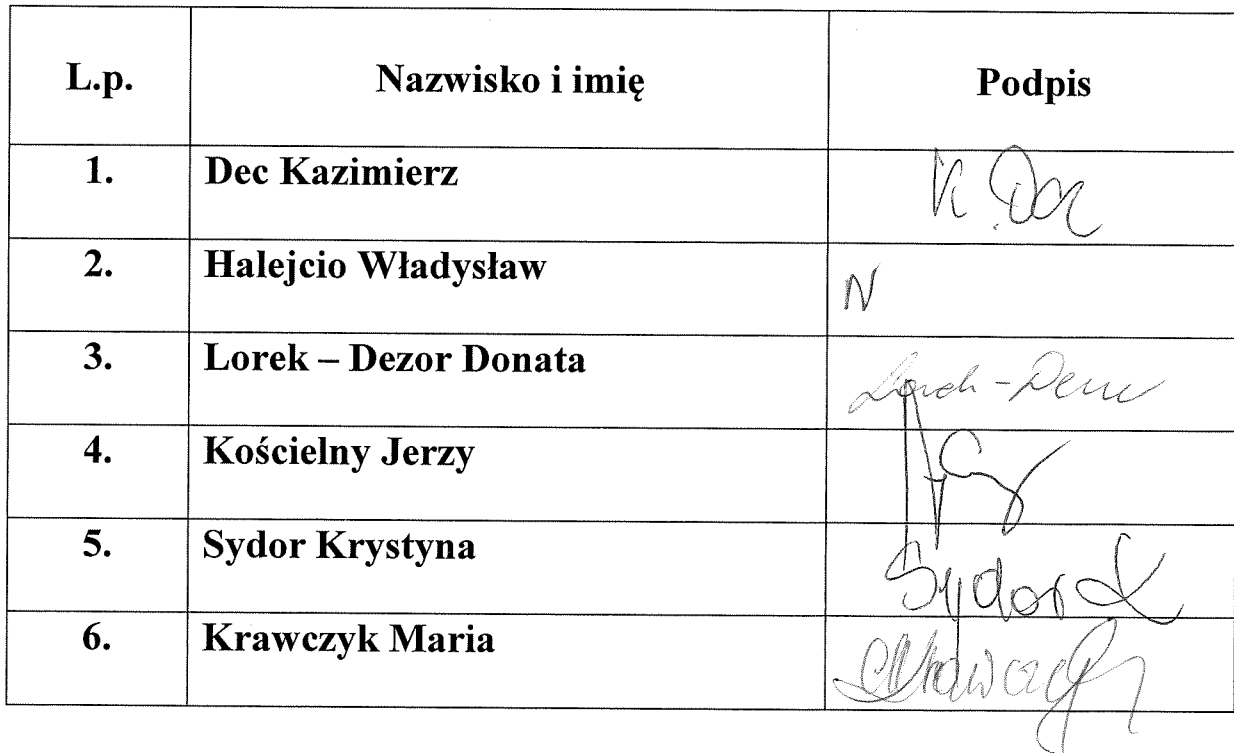 L.p. Nazwisko i imię Podpis
1. Dec Kazimierz K. Dec
2. Halejcio Władysław N
3. Lorek – Dezor Donata Lorek - Dezor
4. Kościelny Jerzy
5. Sydor Krystyna Sydor K
6. Krawczyk Maria MKrawczyk